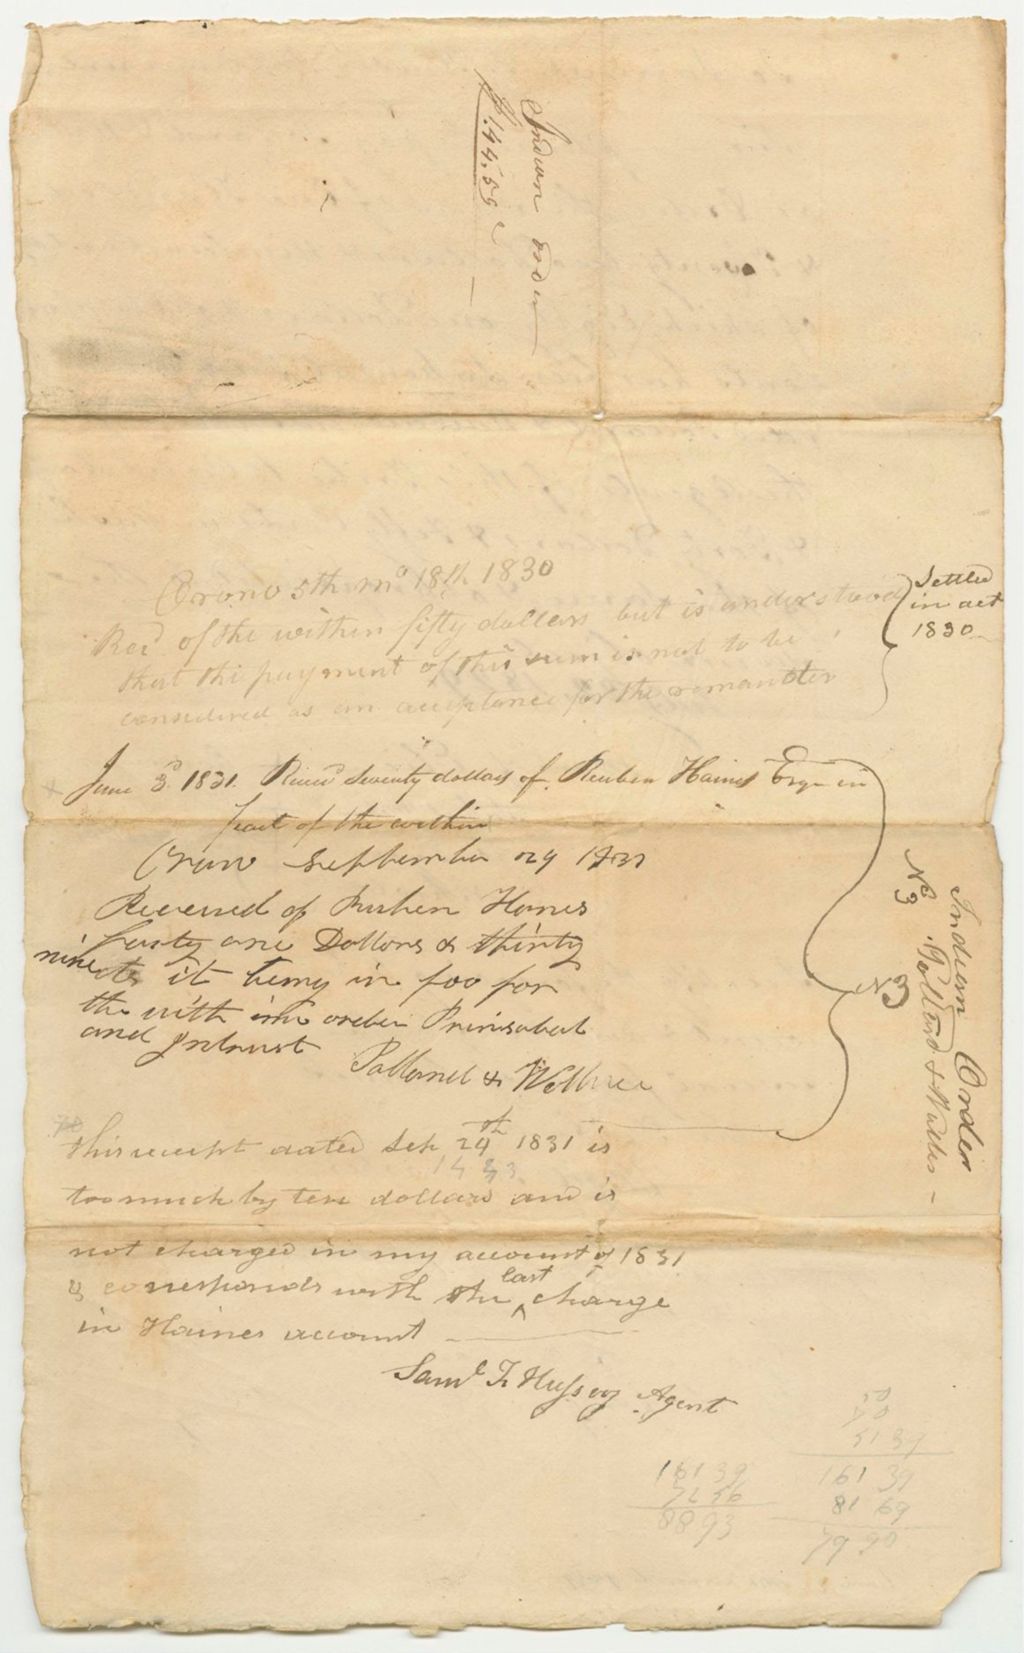 Indian order
$144.59
Orono 5th mo 18th 1830
Recd of the within fifty dollars but is understood
that the payment of this sum is not to be
considered as an acceptance for the remainder
Settled
in act
1830
June 3d 1831. Recievd Seventy dollars of Reuben Haines Esqr in
part of the within
Orono September 24 1831
Received of Reuben Hanes
forty one Dollors & thirty
nine cts it being in foo for
the with inn order Prinsabel
and Intrust
N 3
No 3
Indian Order
this receipt dated Sep 24th 1831 is
too much by ten dollars and is
not charged in my account of 1831
& corresponds with the last charge
in Haines account
Saml F. Hussey Agent
50
70
161 39
88 93
161 39
81 69
79 90